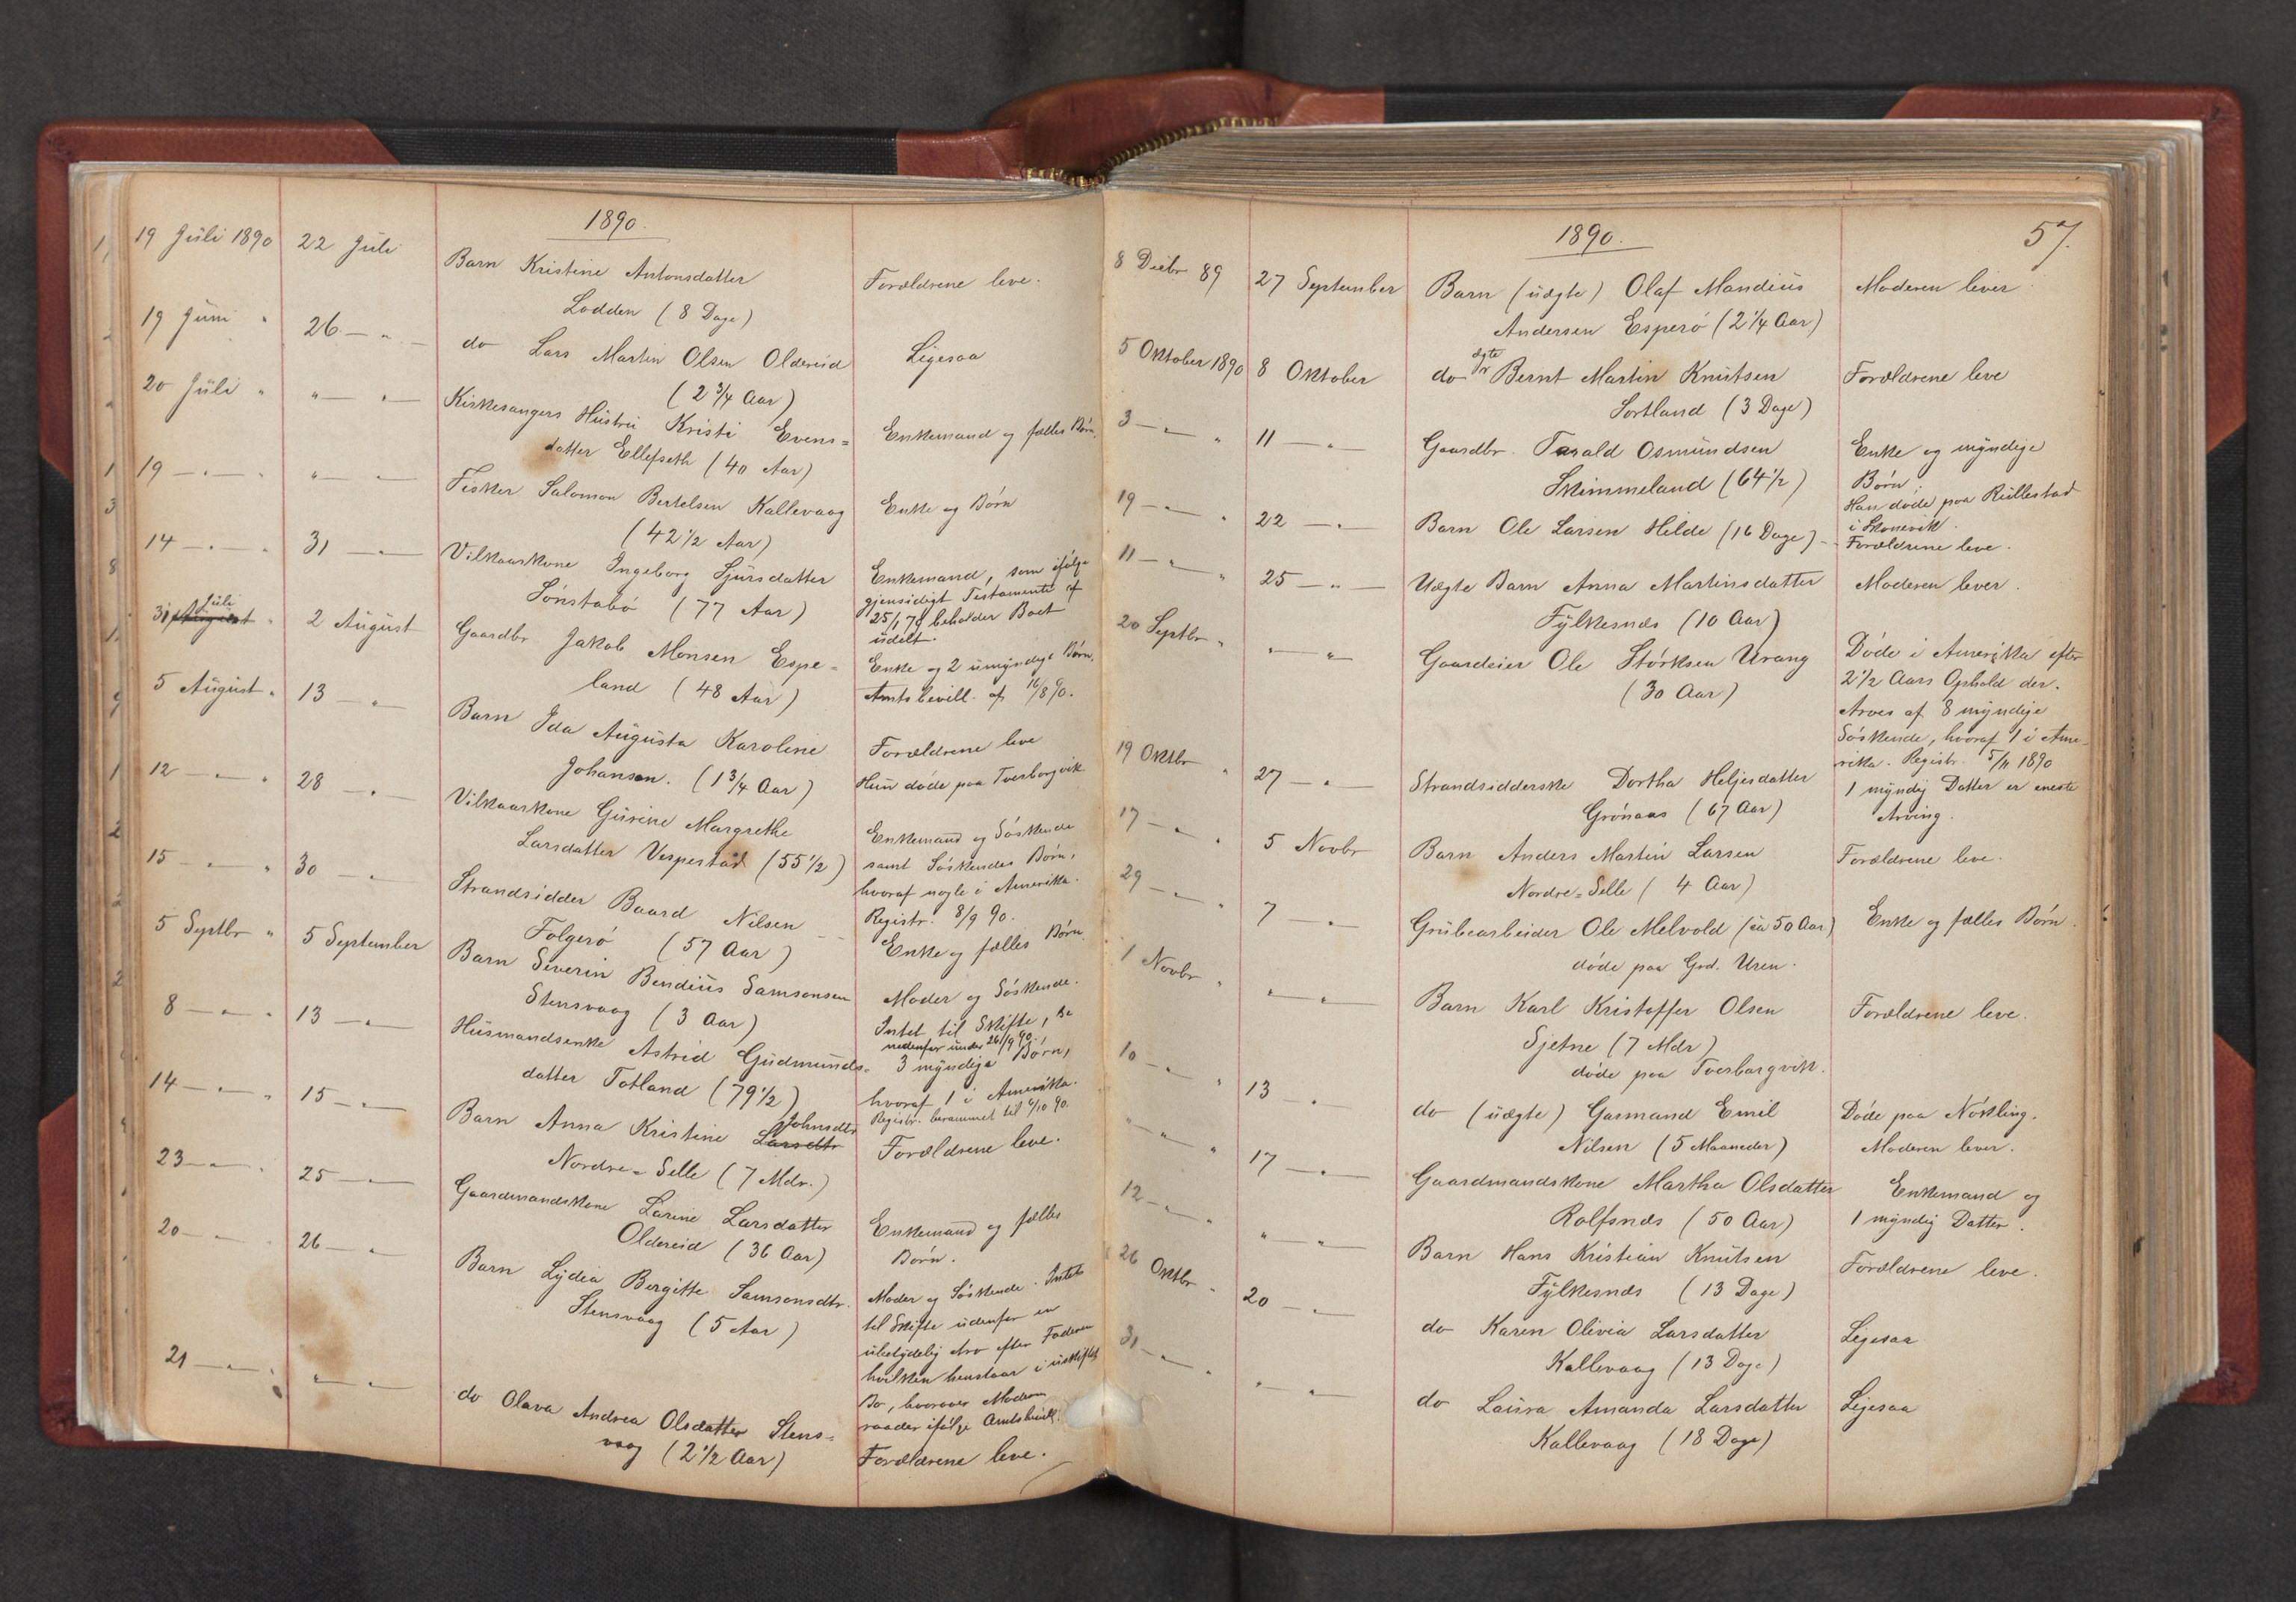 1890.
19 Juli 1890 22 Juli Barn Kristine Antonsdatter Forældrene leve.
Lodden (8 Dage)
19 Juni " 26 — " — do Lars Martin Olsen Oldereid Ligesaa
(2 3/4 Aar)
20 Juli " " — " — Kirkesangers Hustru Kristi Evens= Enkemand og fælles Børn.
datter Ellefseth (40 Aar)
19 — " — " " — " — Fisker Salomon Bertelsen Kallevaag Enke og Børn
(42 1/2 Aar)
14 — " — " 31 — " — Vilkaarskone Ingeborg Sjursdatter Enkemand, som ifølge
Sønstabø (77 Aar) gjensidigt Testamente af
25/1 78 beholder Boet
udelt.
31 Juli August " 2 August Gaardbr Jakob Monsen Espe= Enke og 2 umyndige Børn.
land (48 Aar) Amtsbevill. af 16/8 90.
5 August " 13 — " — Barn Ida Augusta Karoline Forældrene leve
Johansen. (1 3/4 Aar) Hun døde paa Tverborgvik
12 — " — " 28 — " — Vilkaarskone Gurine Margrethe Enkemand og Søskende
Larsdatter Vespestad (55 1/2) samt Søskendes Børn,
hvoraf nogle i Amerika.
Registr. 8/9 90.
15 — " — " 30 — " — Strandsidder Baard Nilsen Enke og fælles Børn.
Folgerø (57 Aar)
5 Septbr " 5 September Barn Severin Bendius Samsonsen Moder og Søskende.
Stensvaag (3 Aar) Intet til Skifte, se
nedenfor under 26/9 90.
8 — " — " 13 — " — Husmandsenke Astrid Gudmunds= 3 myndige Børn,
datter Totland (79 1/2) hvoraf 1 i Amerika.
Registr. berammet til 6/10 90.
14 — " — " 15 — " — Barn Anna Kristine Larsdtr Johnsdtr Forældrene leve.
Nordre=Selle (7 Mdr.)
23 — " — " 25 — " — Gaardmandskone Larine Larsdatter Enkemand og fælles
Oldereid (36 Aar) Børn.
20 — " — 26 — " — Barn Lydia Bergitte Samsonsdtr. Moder og Søskende. Intet
Stensvaag (5 Aar) til Skifte udenfor en
ubetydelig Arv efter Faderen
hvilken henstaar i uskiftet
Bo, hvorover Moderen
raader ifølge Amtsbevill.
21 — " — " " — " — do Olava Andrea Olsdatter Stens= Forældrene leve.
vaag (2 1/2 Aar)
1890. 57.
8 Decbr 89 27 September Barn (uægte) Olaf Mandius Moderen lever
Andersen Esperø (2 1/4 Aar)
5 Oktober 1890 8 Oktober do ægte Bernt Martin Knutsen Forældrene leve
Sortland (3 Dage)
3 — " — " 11 — " — Gaardbr. Tarald Osmundsen Enke og myndige
Skimmeland (64 1/2) Børn.
Han døde paa Rullestad
i Skonevik.
19 — " — " 22 — " — Barn Ole Larsen Hilde (16 Dage) — Forældrene leve.
11 — " — " 25 — " — Uægte Barn Anna Martinsdatter Moderen lever.
Fylkesnæs (10 Aar)
20 Septbr " " — " — Gaardeier Ole Størksen Urang Døde i Amerika efter
(30 Aar) 2 1/2 Aars Ophold der.
Arves af 8 myndige
Søskende, hvoraf 1 i Ame-
rika. Registr. 5/11 1890
19 Oktbr " 27 — " — Strandsidderske Dortha Heljesdatter 1 myndig Datter er eneste
Grønaas (67 Aar) Arving.
17 — " — " 5 Novbr Barn Anders Martin Larsen Forældrene leve.
Nordre=Selle (4 Aar)
29 — " — " 7 — " — Grubearbeider Ole Melvold (ca 50 Aar) Enke og fælles Børn.
døde paa Grd. Uren.
1 Novbr " " — " — Barn Karl Kristoffer Olsen Forældrene leve.
Sjetne (7 Mdr)
døde paa Tverborgvik.
10 — " — " 13 — " — do (uægte) Garmand Emil Døde paa Nøkling.
Nilsen (5 Maaneder) Moderen lever.
" — " — " 17 — " — Gaardmandskone Martha Olsdatter Enkemand og
Rolfsnæs (50 Aar) 1 myndig Datter.
12 — " — " " — " — Barn Hans Kristian Knutsen Forældrene leve.
Fylkesnæs (13 Dage)
26 Oktbr " 20 — " — do Karen Olivia Larsdatter Ligesaa
Kallevaag (13 Dage)
31 — " — " " — " — do Laura Amanda Larsdatter Ligesaa
Kallevaag (18 Dage)